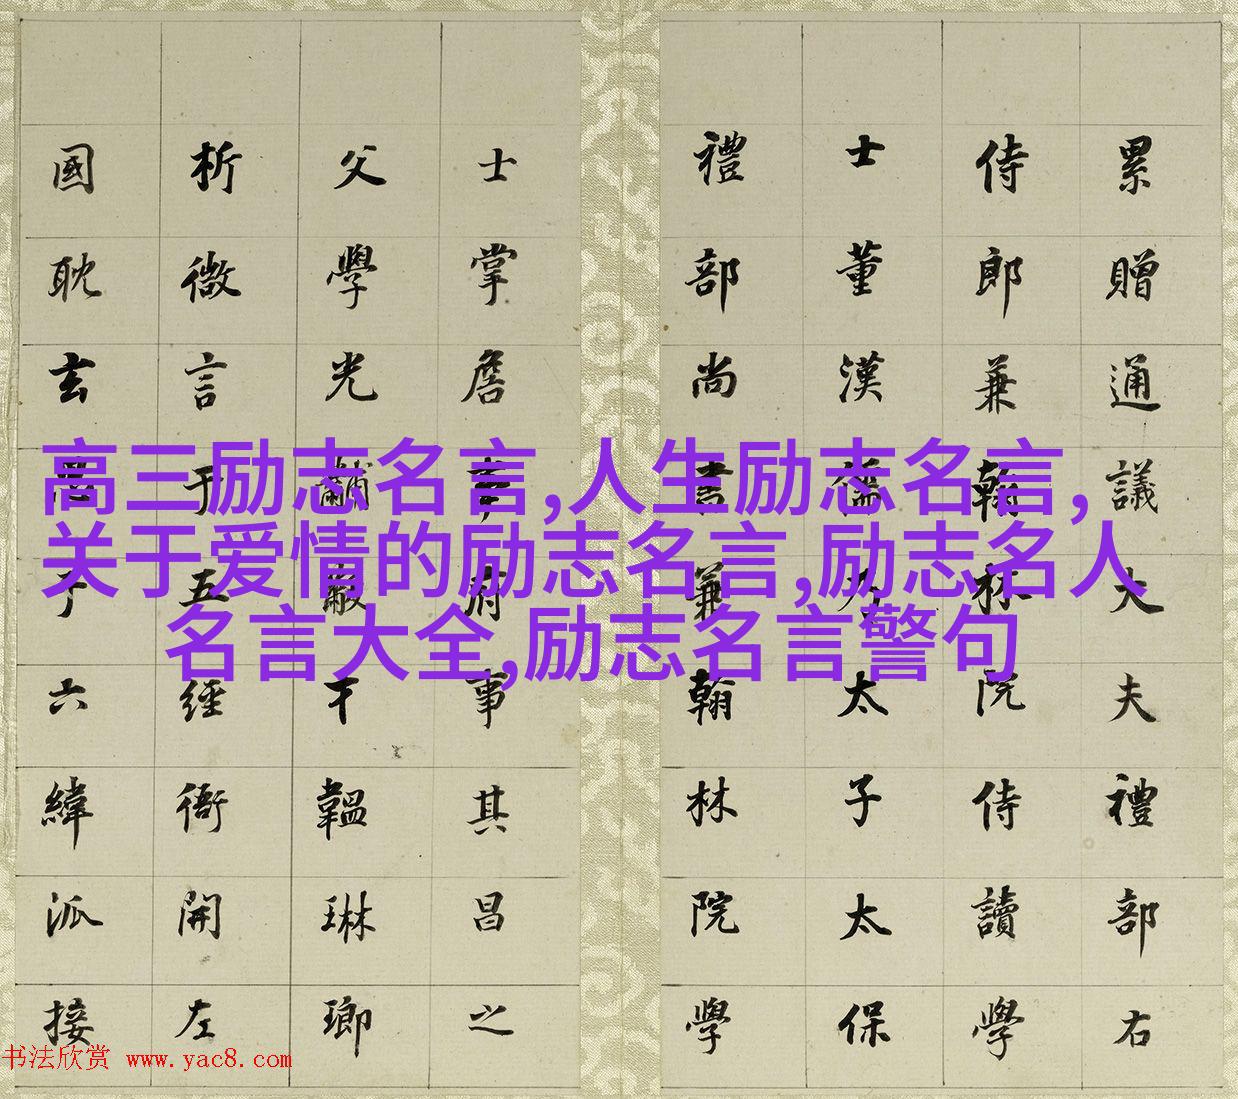 累贈通議大夫禮部右
侍郎兼翰林院侍讀學
士董漢儒乃太子太保
禮部尚書兼翰林院學
士掌詹事府事其昌之
父學光黼黻才韞琳瑯
析微言于五經衙開左
國耽玄于六緯派接
高三励志名言,人生励志名言,
关于爱情的励志名言,励志名人
名言大全,励志名言警句
书法欣赏 www.yac8.com